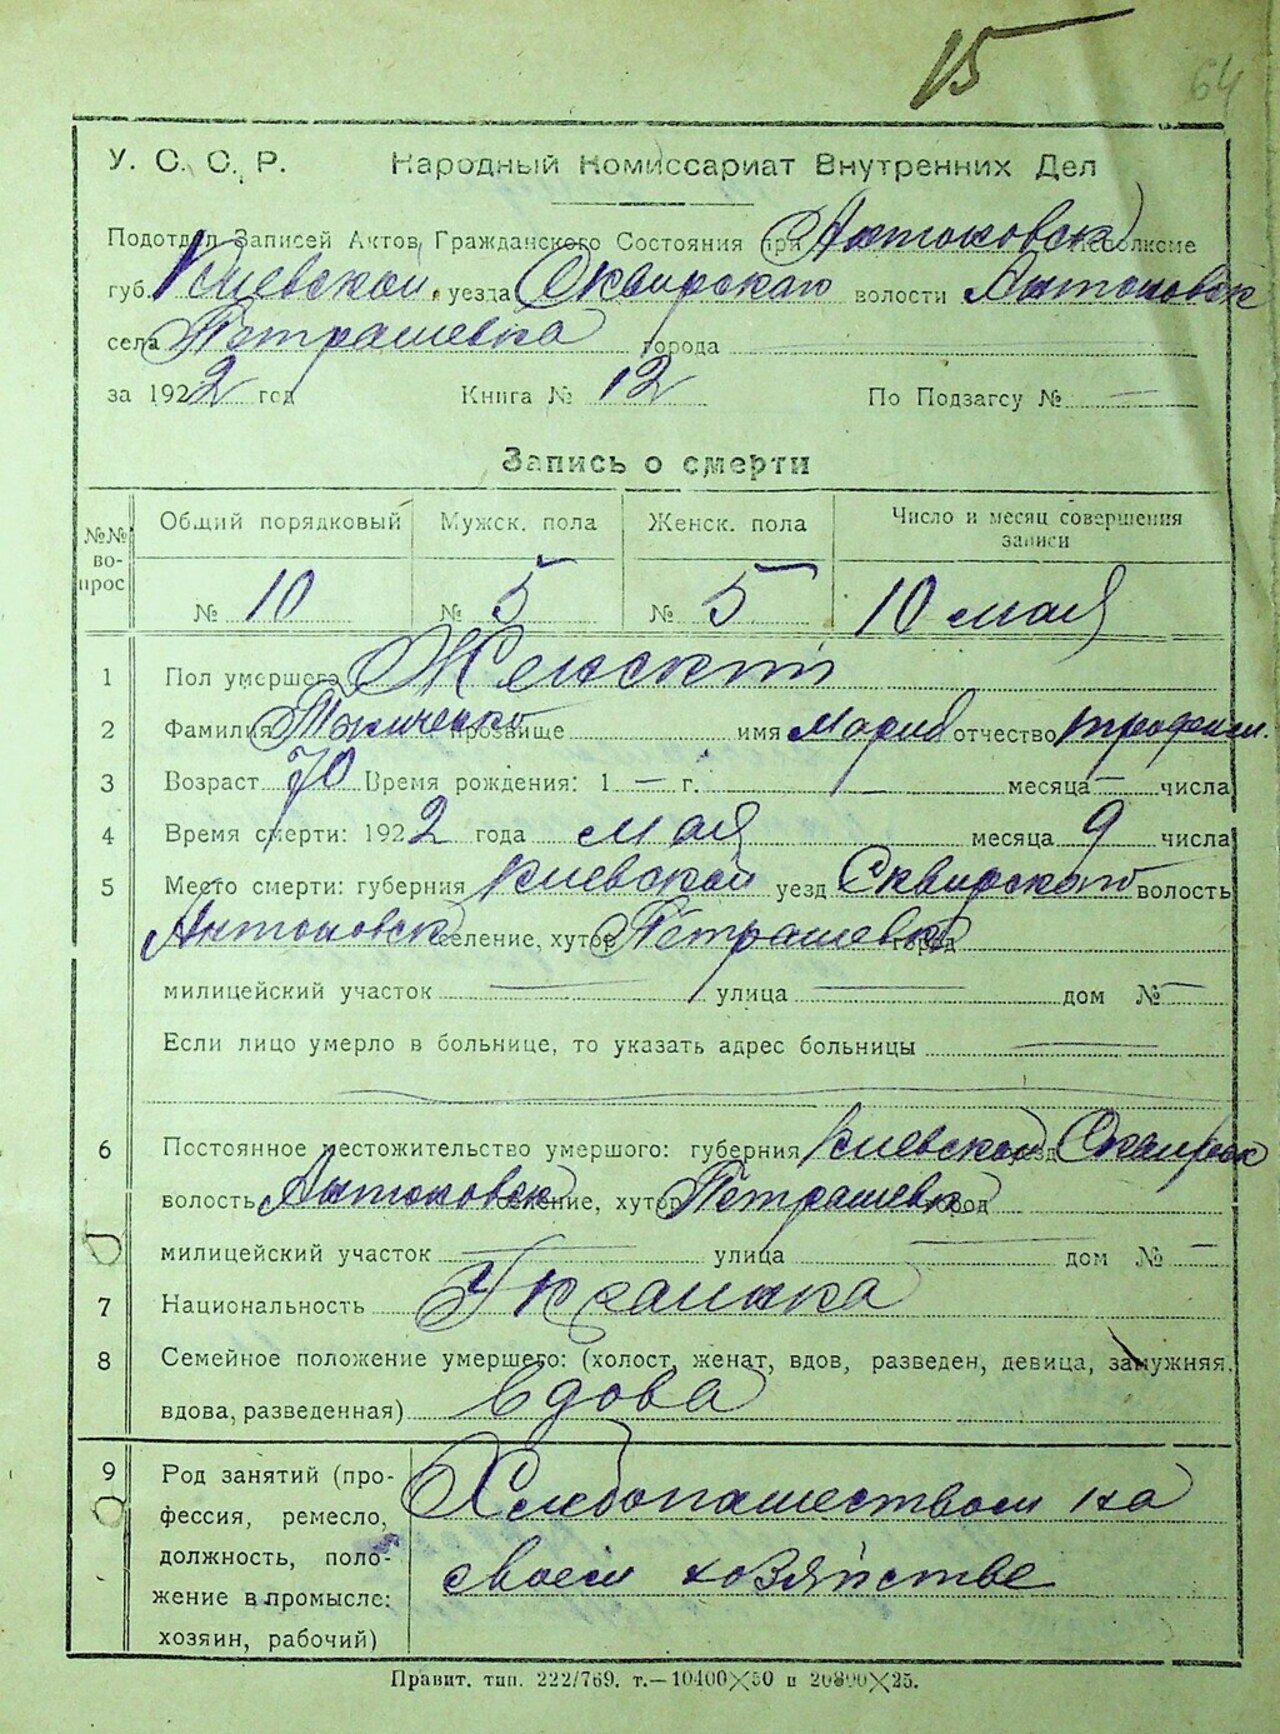 15
64
У. С. С. Р. Народный Комиссариат Внутренних Дел
Подотдел Записей Актов Гражданского Состояния при Антоновск
губ. Киевской уезда Сквирскаго волости Антоновск
села Петрашевка города
за 1922 год Книга № 12 По Подзагсу № —
Запись о смерти
№№ вопрос Общий порядковый Мужск. пола Женск. пола Число и месяц совершения записи
№ 10 № 5 № 5 10 мая
1 Пол умершего Женский
2 Фамилия прозвище имя Мария отчество Трофим.
3 Возраст 70 Время рождения: 1 — г. — месяца — числа
4 Время смерти: 1922 года мая месяца 9 числа
5 Место смерти: губерния Киевской уезд Сквирскаго волость
Антоновск селение, хутор Петрашевка город
милицейский участок — улица — дом № —
Если лицо умерло в больнице, то указать адрес больницы —
6 Постоянное местожительство умершого: губерния Киевской уезд Сквирск
волость Антоновск селение, хутор Петрашевка город
милицейский участок — улица — дом № —
7 Национальность Украинка
8 Семейное положение умершего: (холост, женат, вдов, разведен, девица, замужняя,
вдова, разведенная) Вдова
9 Род занятий (про- Хлебопашеством на
фессия, ремесло,
должность, поло- своем хозяйстве
жение в промысле:
хозяин, рабочий)
Правит. тип. 222/769. т.—10400×50 и 20800×25.